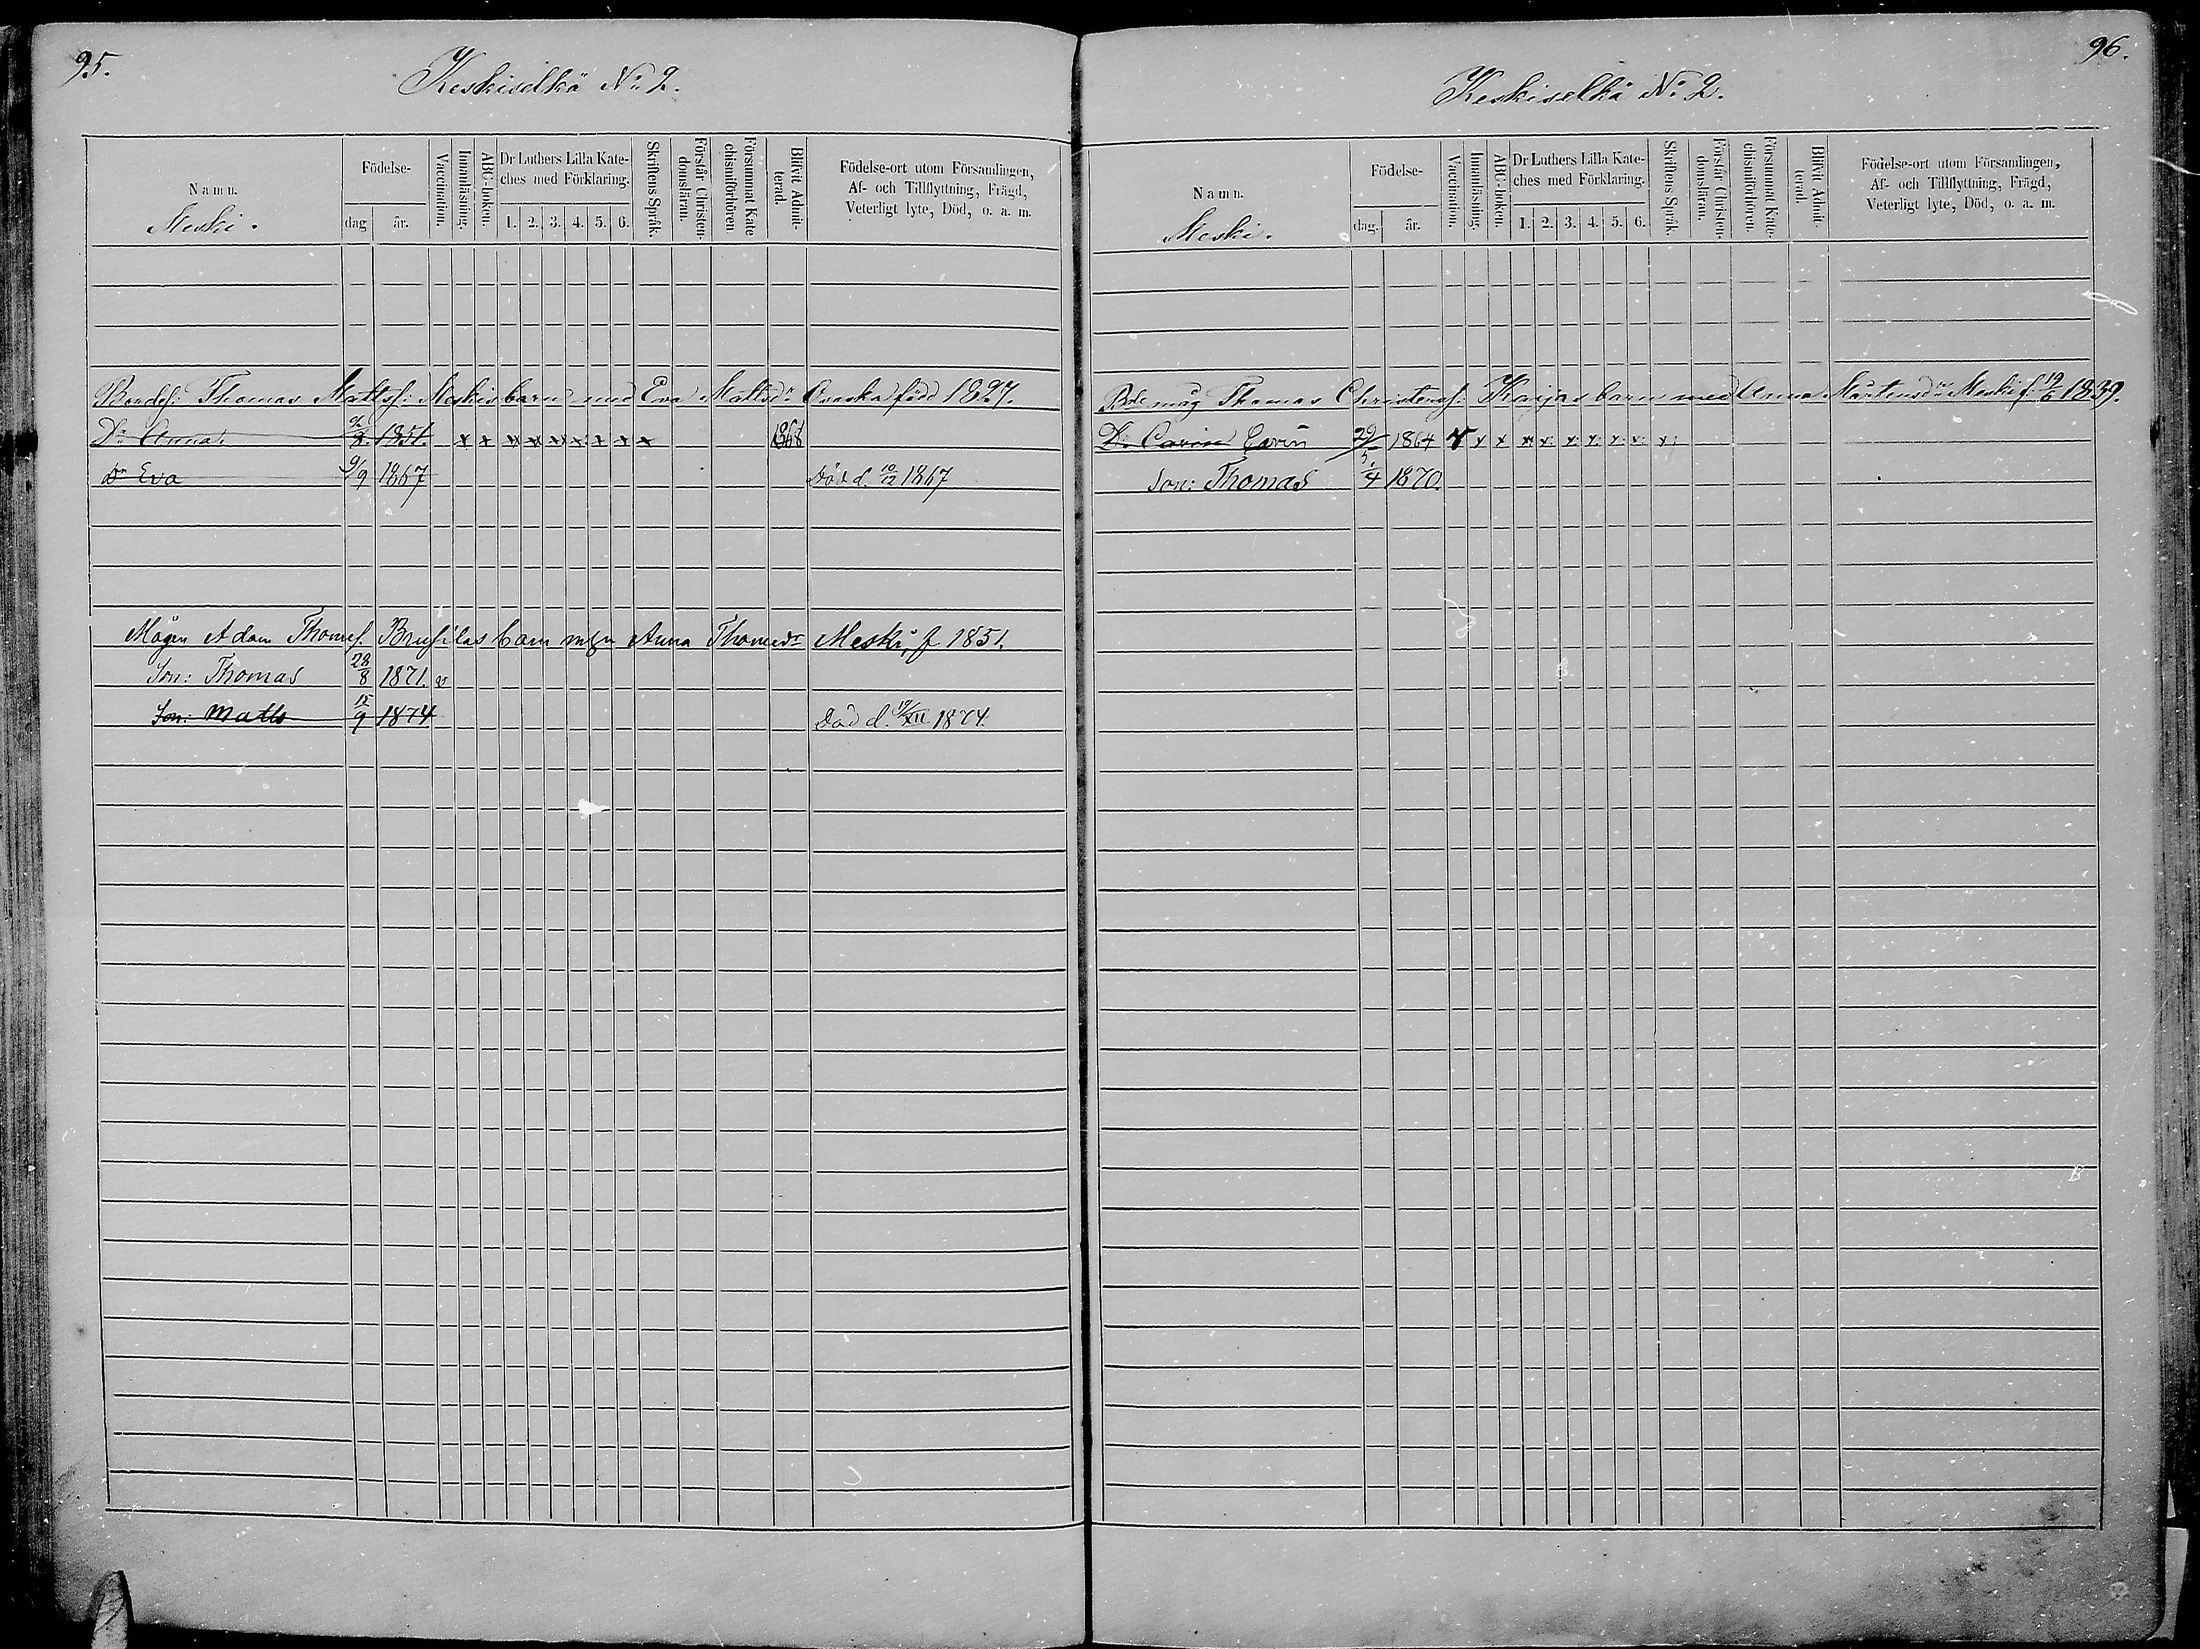 95.
Keskiselkä No 2.
Namn.
Meski.
Födelse-
dag
år.
Vaccination.
Innanläsning.
ABC-boken.
Dr Luthers Lilla Kate-
ches med Förklaring.
1. 2. 3. 4. 5. 6.
Skriftens Språk.
Förstår Christen-
domsläran.
Försummat Kate
chismiförhören
Blifvit Admit-
terad.
Födelse-ort utom Församlingen,
Af- och Tillflyttning, Frägd,
Veterligt lyte, Död, o. a. m.
Bondes: Thomas Mattss: Meskis barn med Eva Mattsdr Ovaska född 1827.
Dr Anna. 1851. x x x x x x x x x 1868
Dr Eva 9/9 1867 Död d. 10/12 1867
Mågen Adam Thomss. Brusilas barn m/h Anna Thomasdr Meski, f 1851.
Son: Thomas 28/8 1871. v
Son: Matts 15/9 1874 Död d. 19/XII 1874.
96.
Keskiselkä No 2.
Namn.
Meski.
Födelse-
dag.
år.
Vaccination.
Innanläsning.
ABC-boken.
Dr Luthers Lilla Kate-
ches med Förklaring.
1. 2. 3. 4. 5. 6.
Skriftens Språk.
Förstår Christen-
domsläran.
Försummat Kate-
chismiförhören.
Blifvit Admit-
terad.
Födelse-ort utom Församlingen,
Af- och Tillflyttning, Frägd,
Veterligt lyte, Död, o. a. m.
Bdemåg Thomas Christerss: Karjas barn med Anna Mårtensdr Meski f. 19/6 1839.
Dr Carin 1864 v x x x x x x x x x
Son: Thomas 5/4 1870.